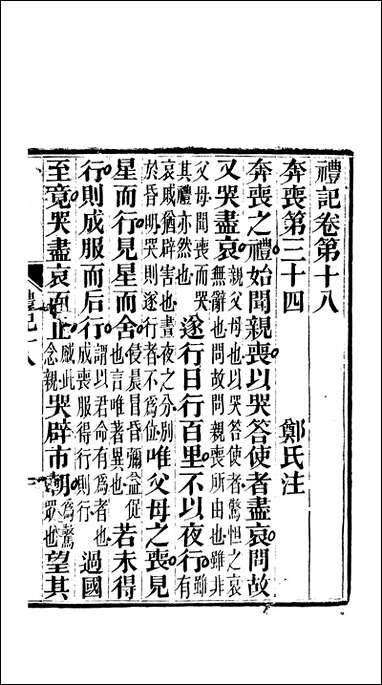 禮記卷第十八
奔喪第三十四　鄭氏注
奔喪之禮始聞親喪以哭答使者盡哀問故
又哭盡哀親父母也以哭答使者驚怛之哀無辭也問故問親喪所由也雖非
父母聞喪而哭其禮亦然也遂行日行百里不以夜行雖有
哀戚猶辟害也晝夜之分別於昏明哭則遂行者不爲位唯父母之喪見
星而行見星而舍侵晨冒昏彌益促也言唯著異也若未得
行則成服而后行謂以君命有爲者也成喪服得行則行過國
至竟哭盡哀而止感此念親哭辟市朝爲驚眾也望其
禮記十八